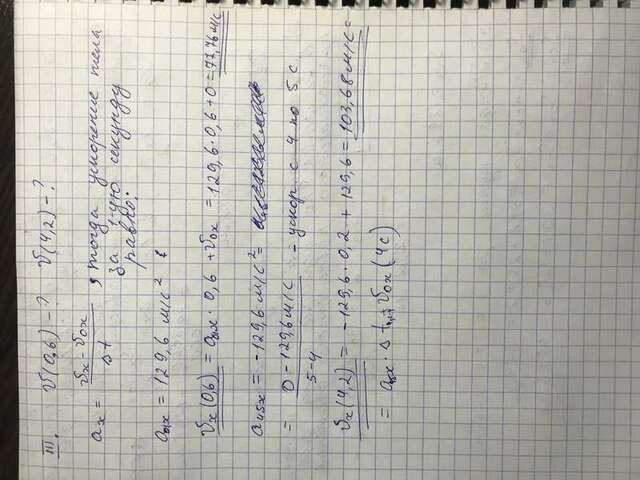 III. v(0,6) - ? v(4,2) - ?
aₓ = (vₓ - v₀ₓ) / Δt , тогда ускорение тела
за 1-ую секунду
равно:
a₀₁ₓ = 129,6 м/с²
vₓ(0,6) = a₀₁ₓ · 0,6 + v₀ₓ = 129,6 · 0,6 + 0 = 77,76 м/с
a₄₅ₓ = -129,6 м/с² =
= (0 - 129,6 м/с) / (5-4) - ускор с 4 по 5 с
vₓ(4,2) = -129,6 · 0,2 + 129,6 = 103,68 м/с =
= a₄₅ₓ · Δt + v₀ₓ (4с)